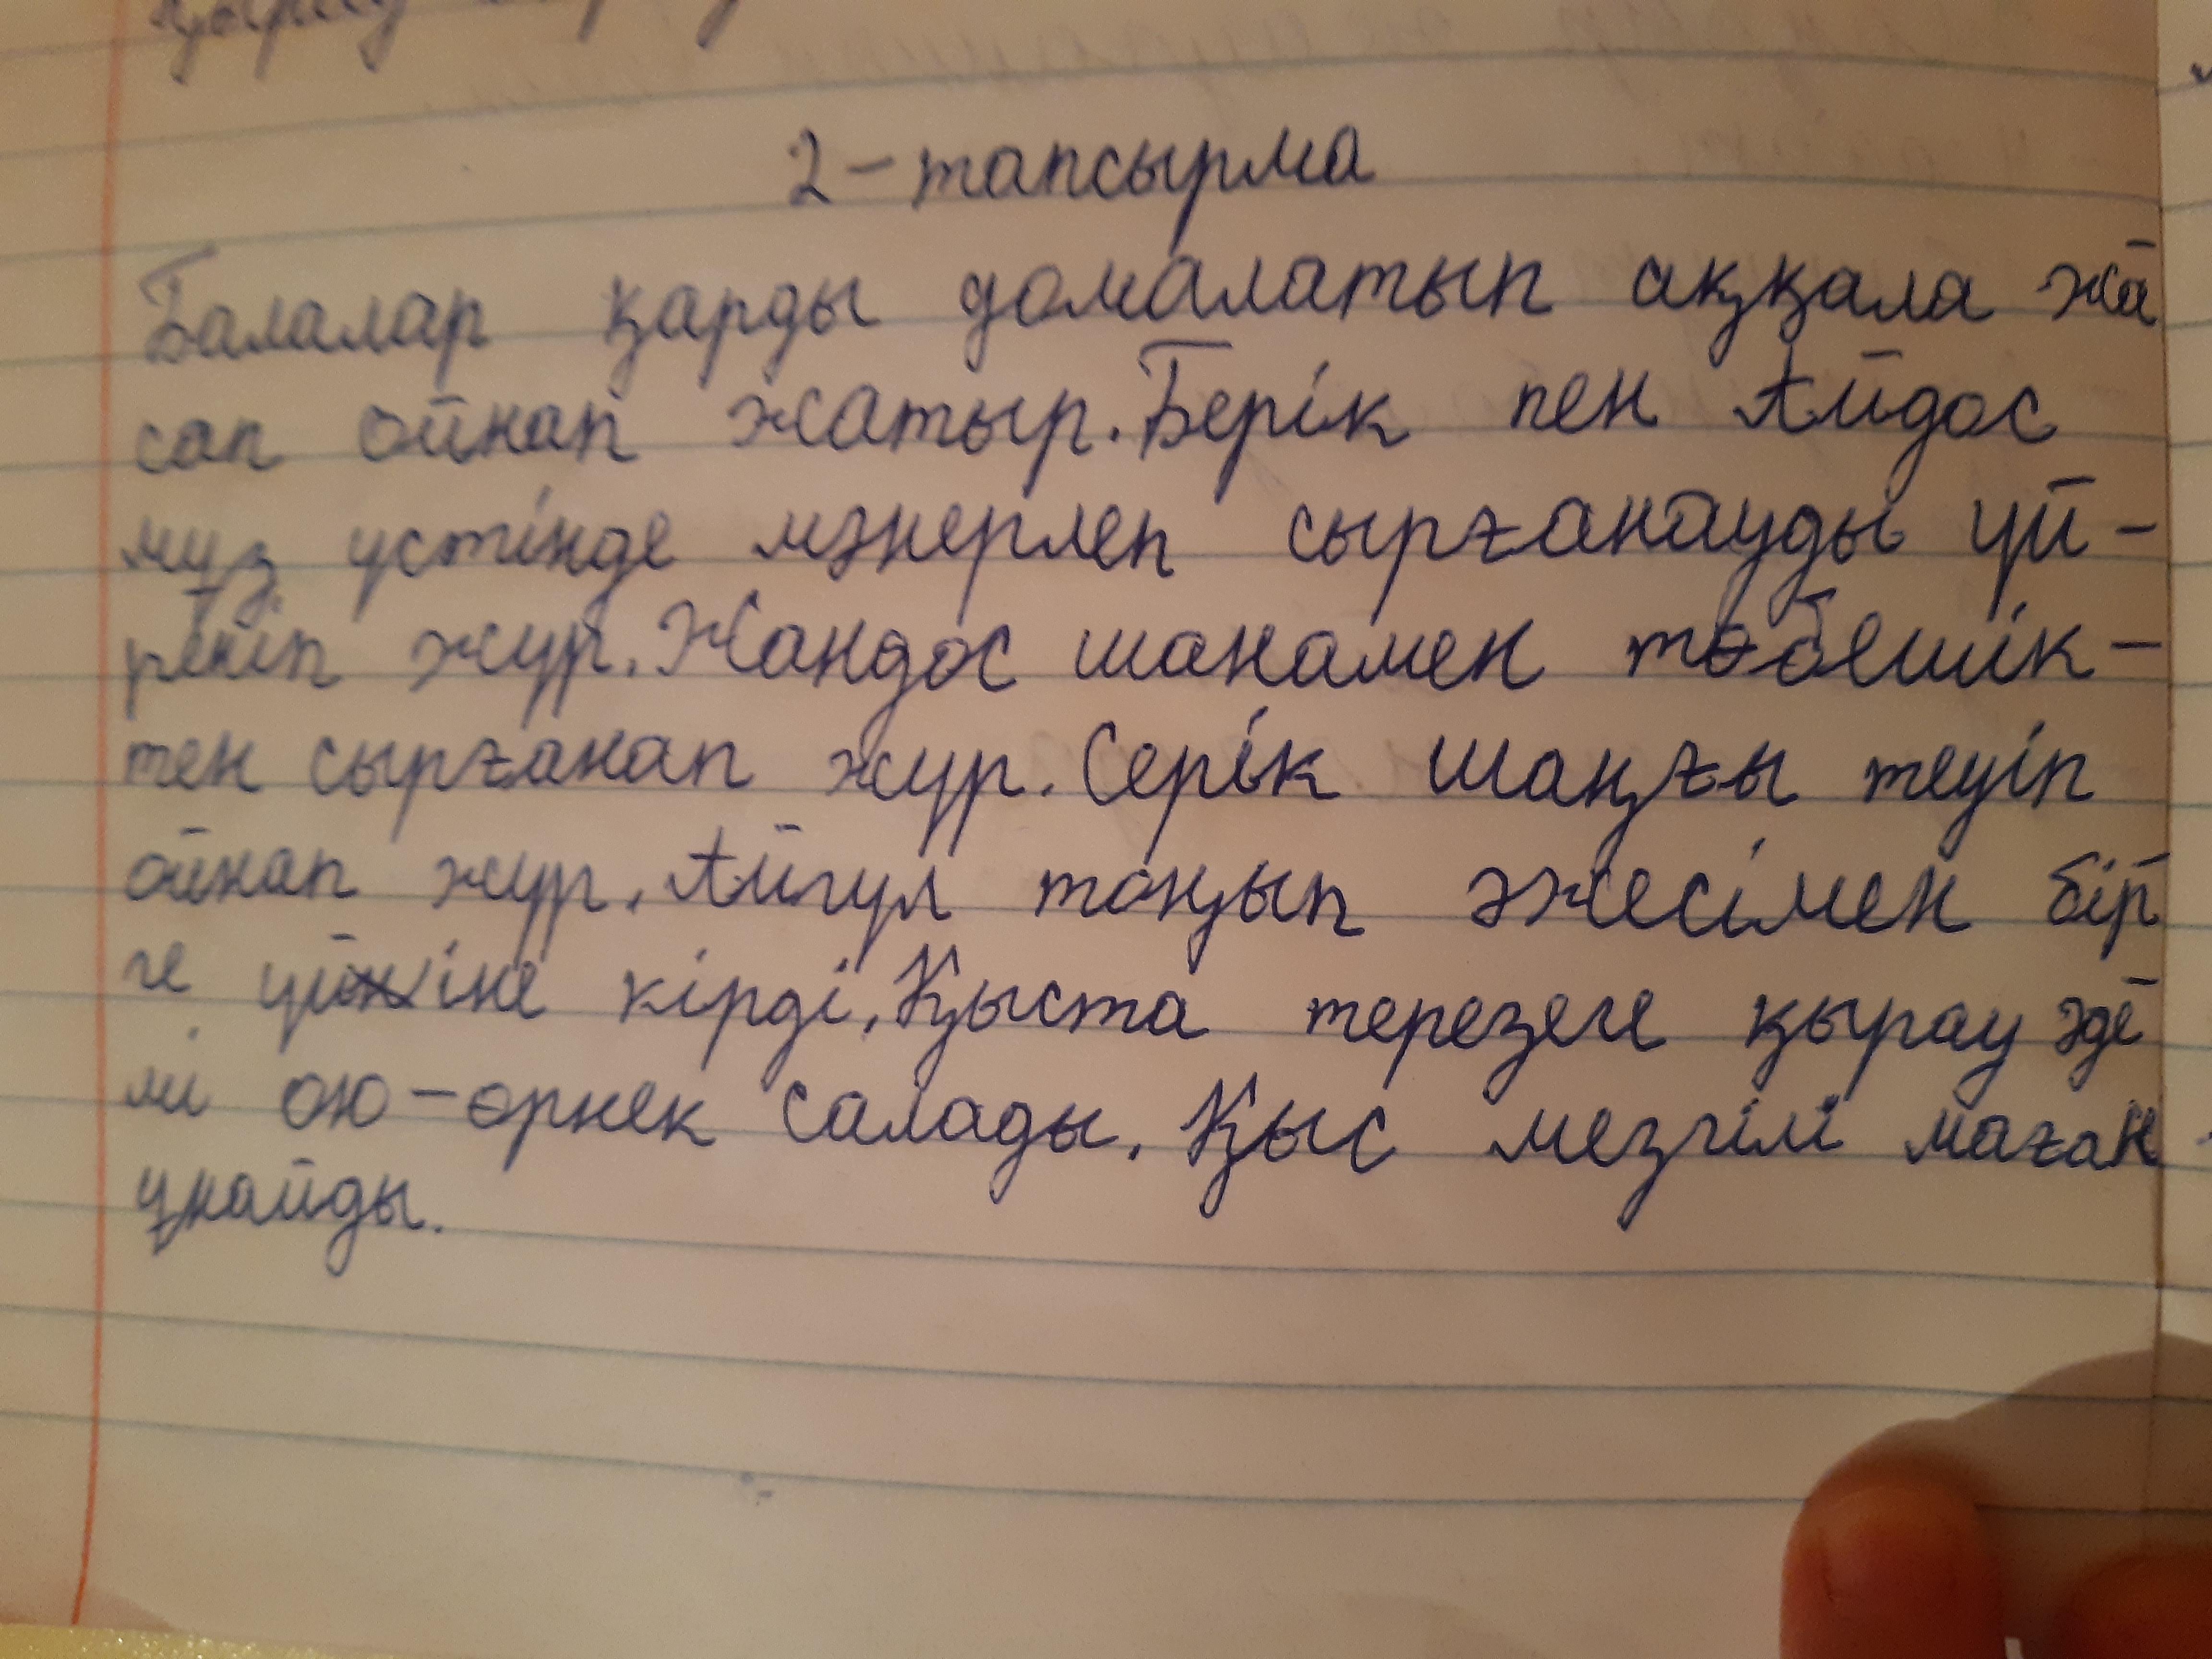 2-тапсырма
Балалар қарды домалатып аққала жа-
сап ойнап жатыр. Берік пен Айдос
мұз үстінде мәнерлеп сырғанауды үй-
реніп жүр. Жандос шанамен төбешік-
тен сырғанап жүр. Серік шаңғы теуіп
ойнап жүр. Айгүл тоңып әжесімен бір-
ге үйіне кірді. Қыста терезеге қырау әде-
мі ою-өрнек салады. Қыс мезгілі маған
ұнайды.